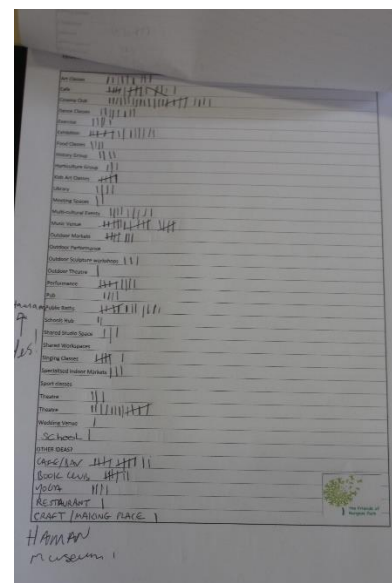 Art Classes
Cafe
Cinema Club
Dance Classes
Exercise
Exhibition
Food Classes
History Group
Horticulture Group
Kids Art Classes
Library
Meeting Spaces
Multicultural Events
Music Venue
Outdoor Markets
Outdoor Performance
Outdoor Sculpture workshops
Outdoor Theatre
Performance
Pub
Public Baths
Yes!
Schools Hub
Shared Studio Space
Shared Workspaces
Singing Classes
Specialised Indoor Markets
Sport classes
Theatre
Theatre
Wedding Venue
SCHOOL
OTHER IDEAS?
CAFE/BAR
BOOK CLUB
YOGA
RESTAURANT
CRAFT / MAKING PLACE
The Friends of
Park
HAMAM
Museum